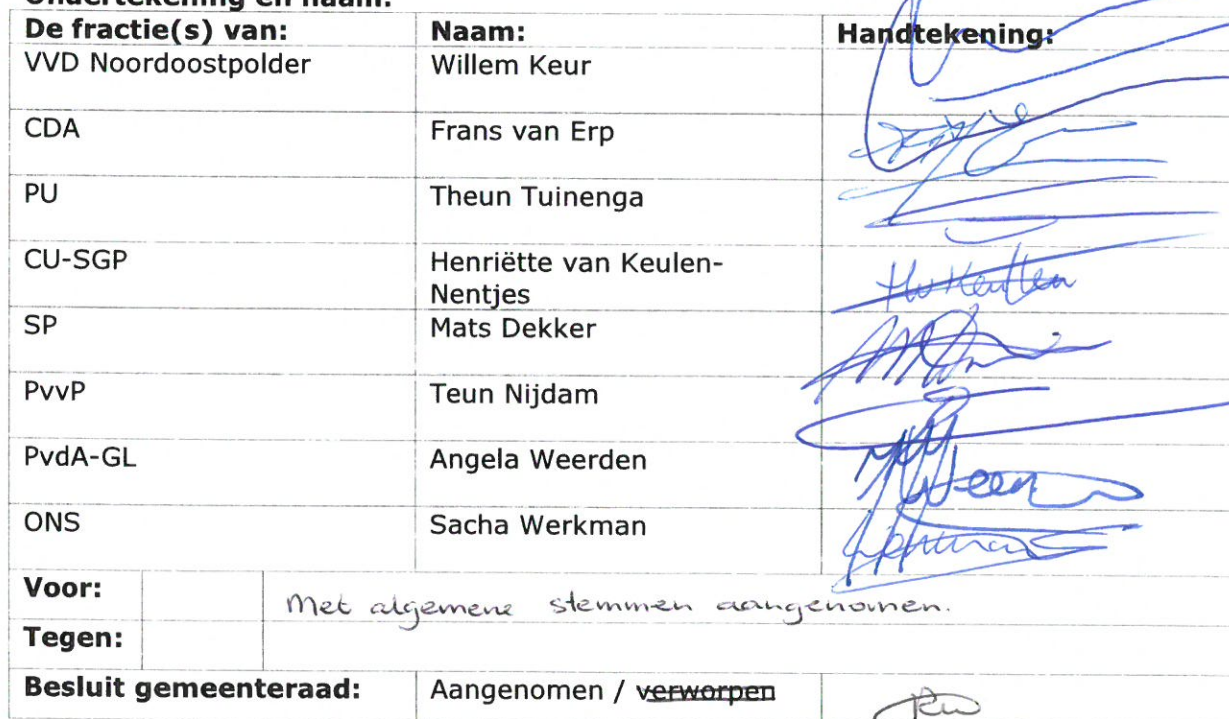 Ondertekening en naam:
De fractie(s) van: Naam: Handtekening:
VVD Noordoostpolder Willem Keur
CDA Frans van Erp
PU Theun Tuinenga
CU-SGP Henriëtte van Keulen-
Nentjes
SP Mats Dekker
PvvP Teun Nijdam
PvdA-GL Angela Weerden
ONS Sacha Werkman
Voor: Met algemene stemmen aangenomen.
Tegen:
Besluit gemeenteraad: Aangenomen / verworpen